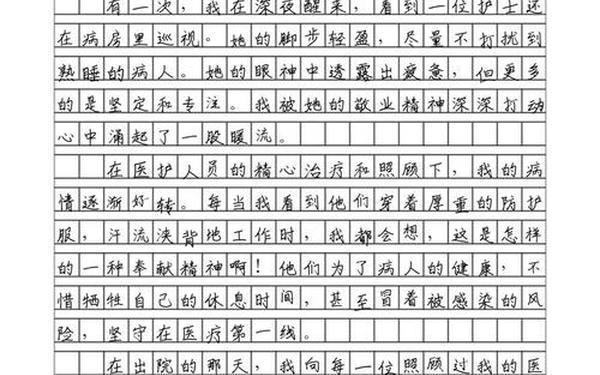 有一次，我在深夜醒来，看到一位护士还
在病房里巡视。她的脚步轻盈，尽量不打扰到
熟睡的病人。她的眼神中透露出疲惫，但更多
的是坚定和专注。我被她的敬业精神深深打动
心中涌起了一股暖流。
在医护人员的精心治疗和照顾下，我的病
情逐渐好转。每当我看到他们穿着厚重的防护
服，汗流浃背地工作时，我都会想，这是怎样
的一种奉献精神啊！他们为了病人的健康，不
惜牺牲自己的休息时间，甚至冒着被感染的风
险，坚守在医疗第一线。
在出院的那天，我向每一位照顾过我的医